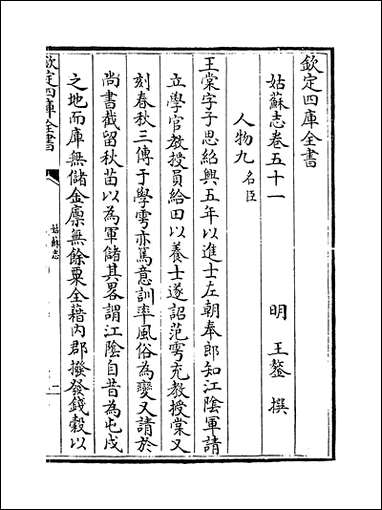 欽定四庫全書
姑蘇志卷五十一
明 王鏊 撰
人物九 名臣
王棠字子思紹興五年以進士左朝奉郎知江陰軍請
立學官教授員給田以養士遂詔范雩充教授棠又
刻春秋三傳于學雩亦篤意訓率風俗為變又請於
尚書截留秋苗以為軍儲其畧謂江陰自昔為屯戍
之地而庫無儲金廩無餘粟全藉内郡撥發錢穀以
欽定四庫全書
姑蘇志